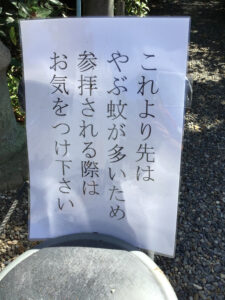 これより先は
やぶ蚊が多いため
参拝される際は
お気をつけ下さい